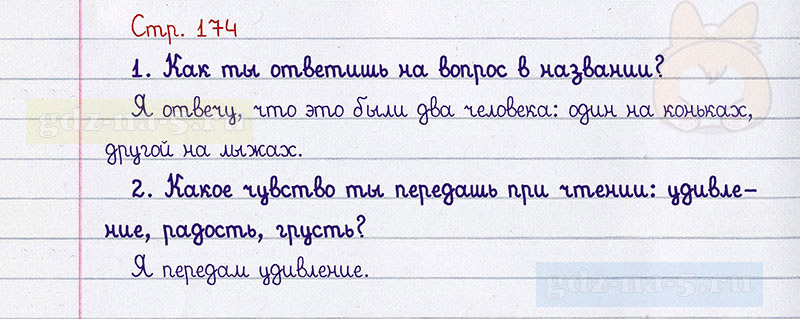 Стр. 174
1. Как ты ответишь на вопрос в названии?
Я отвечу, что это были два человека: один на коньках,
другой на лыжах.
2. Какое чувство ты передашь при чтении: удивле-
ние, радость, грусть?
Я передам удивление.
gdz-na-5.ru
gdz-na-5.ru